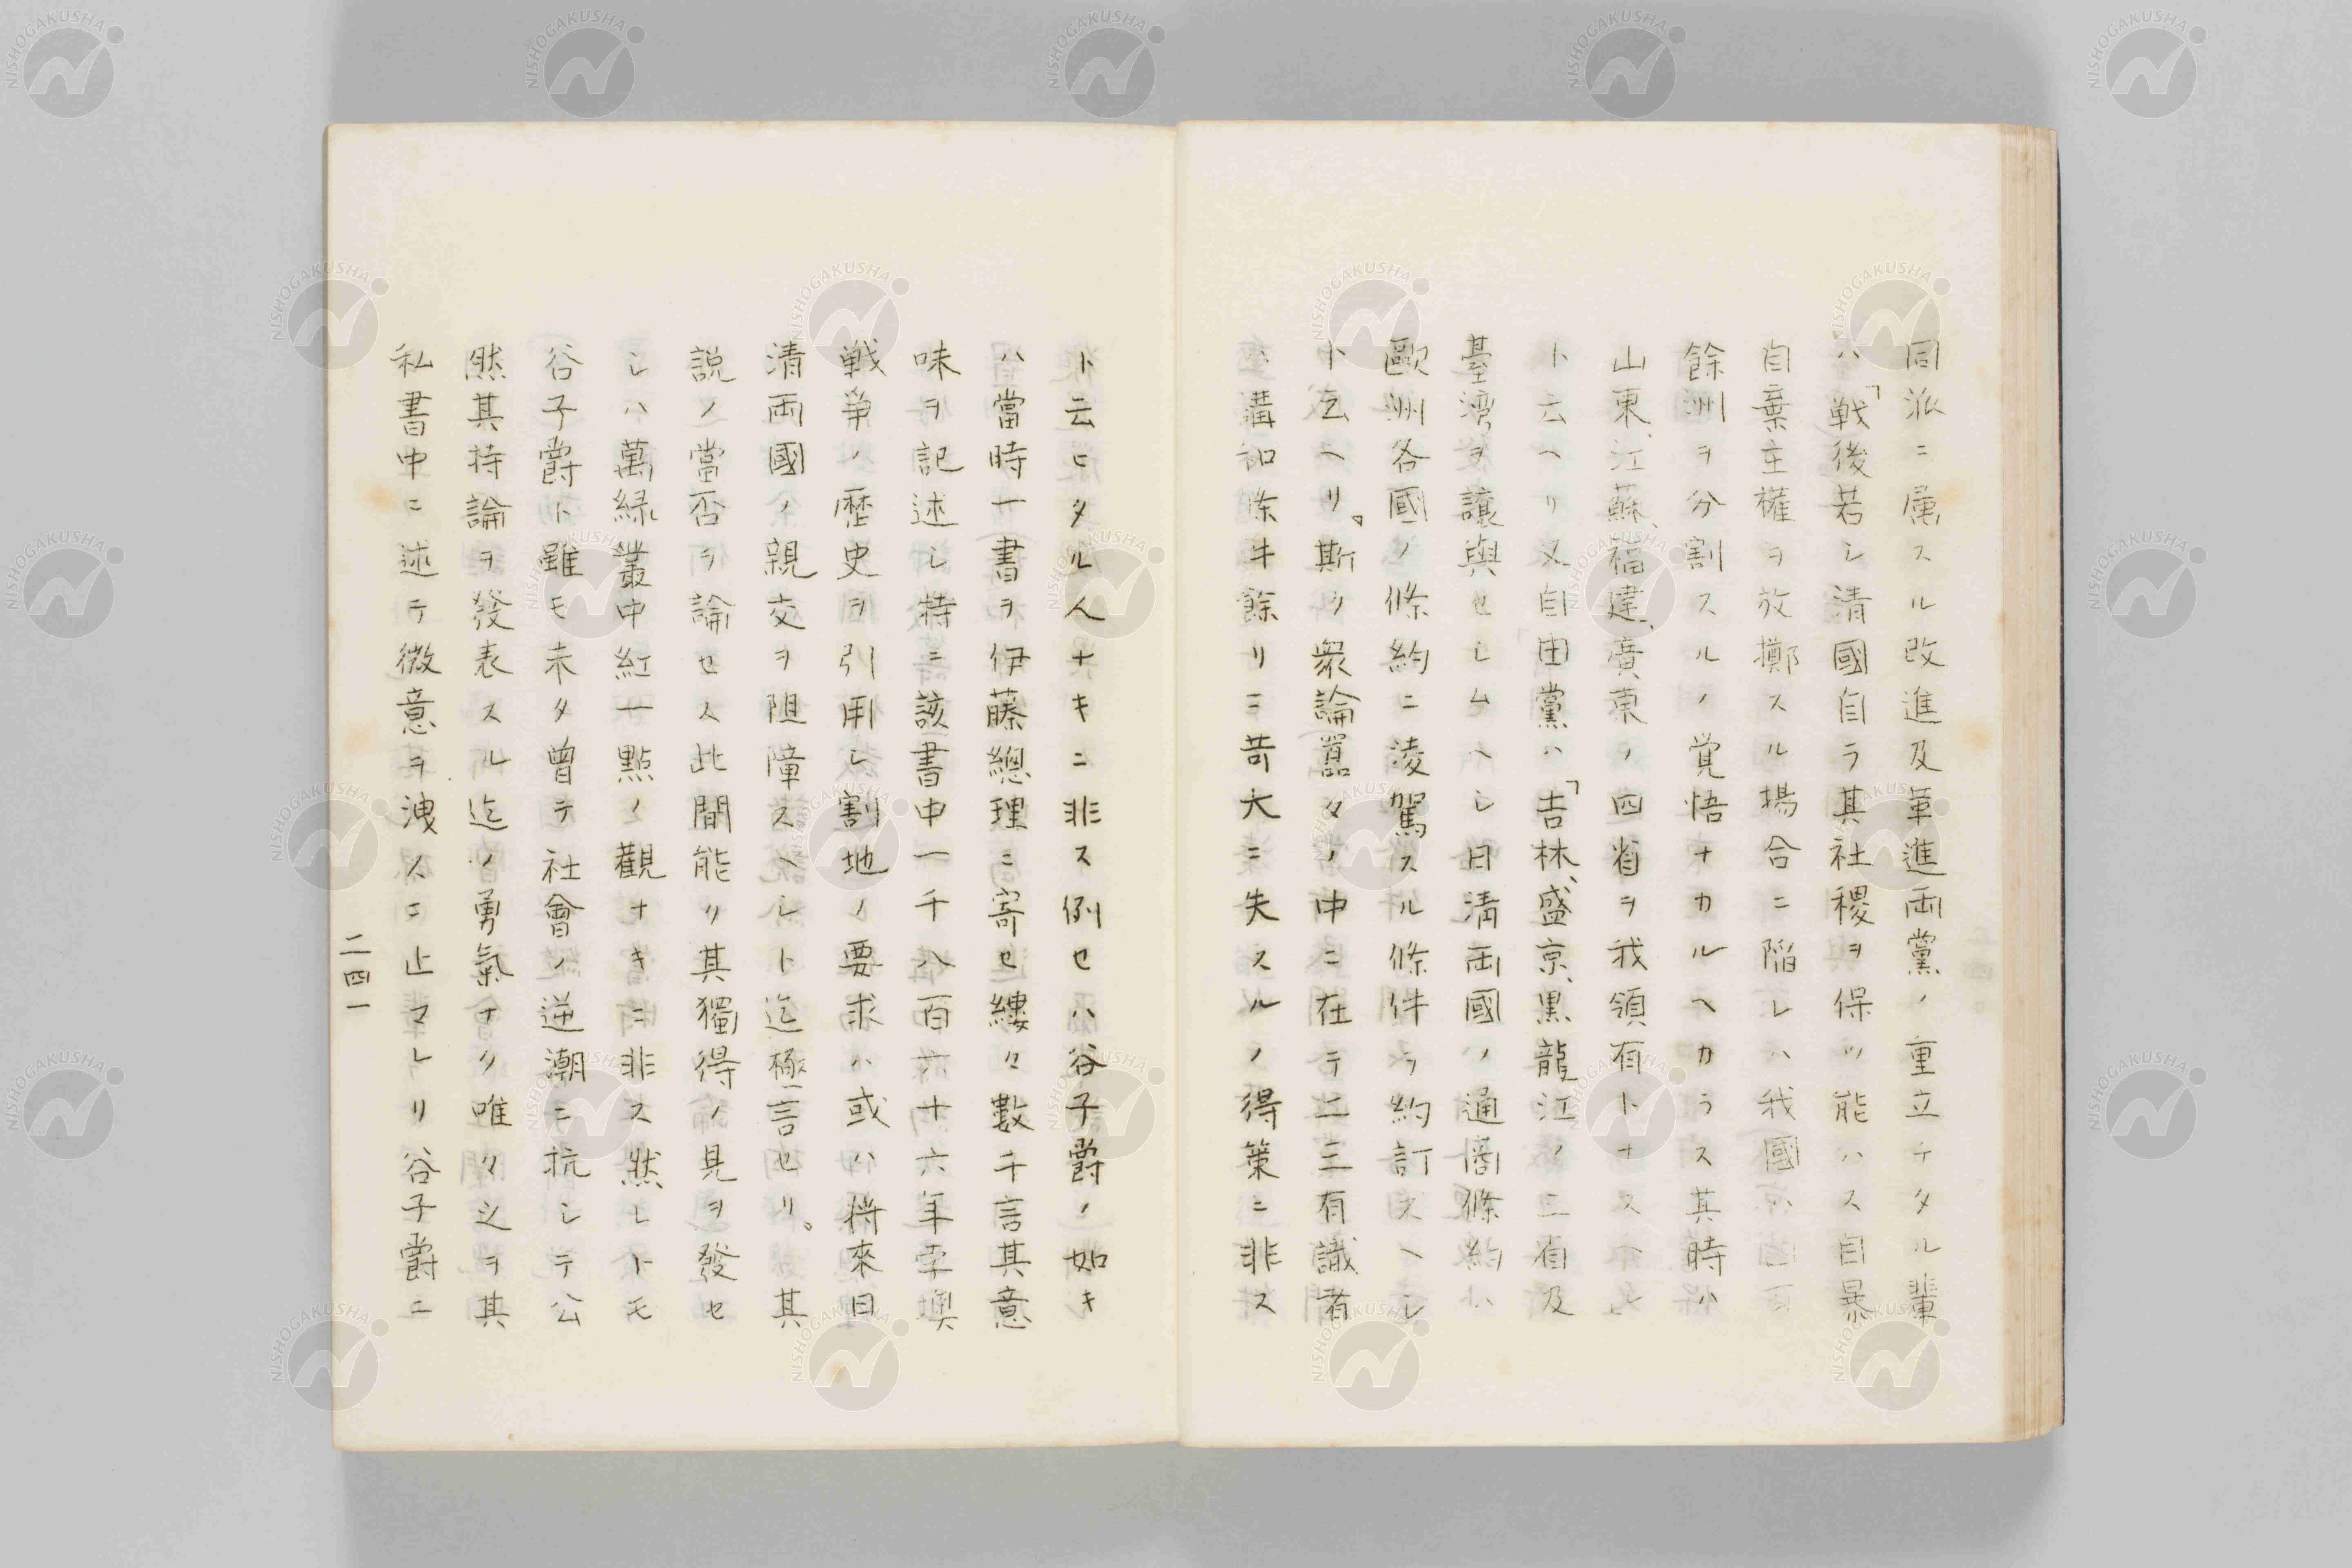 同派ニ属スル改進及革進両黨ノ重立チタル輩
ハ「戦後若シ清國自ラ其社稷ヲ保ツ能ハス自暴
自棄主權ヲ放擲スル場合ニ陥レハ我國ハ固
餘洲ヲ分割スルノ覚悟ナカルヘカラス其時ハ
山東、江蘇、福建、廣東ノ四省ヲ我領有トナスヘシ」
ト云ヘリ又自由黨ハ「吉林、盛京、黒龍江ノ三省及
臺湾ヲ讓與セシムヘシ日清両國ノ通商條約ハ
歐洲各國ノ條約ニ凌駕スル條件ヲ約訂スヘシ
ト云ヘリ。斯ク衆論囂々ノ中ニ在テ二三有識者
ハ講和條件餘リニ苛大ニ失スルノ得策ニ非ス
ト云ヒタル人ナキニ非ス例セハ谷子爵ノ如キ
ハ當時一書ヲ伊藤總理ニ寄セ縷々數千言其意
味ヲ記述シ特ニ該書中一千八百六十六年孛墺
戦争ノ歴史ヲ引用シ割地ノ要求ハ或ハ将來日
清両國ノ親交ヲ阻障スヘシト迄極言セリ。其
説ノ當否ヲ論セス此間能ク其獨得ノ見ヲ發セ
シハ萬緑叢中紅一點ノ觀ナキニ非ス然レトモ
谷子爵ト雖モ未タ曾テ社會ノ逆潮ニ抗シテ公
然其持論ヲ發表スル迄ノ勇氣ナク唯々之ヲ其
私書中ニ述テ微意ヲ洩スニ止マレリ谷子爵ニ
二四一